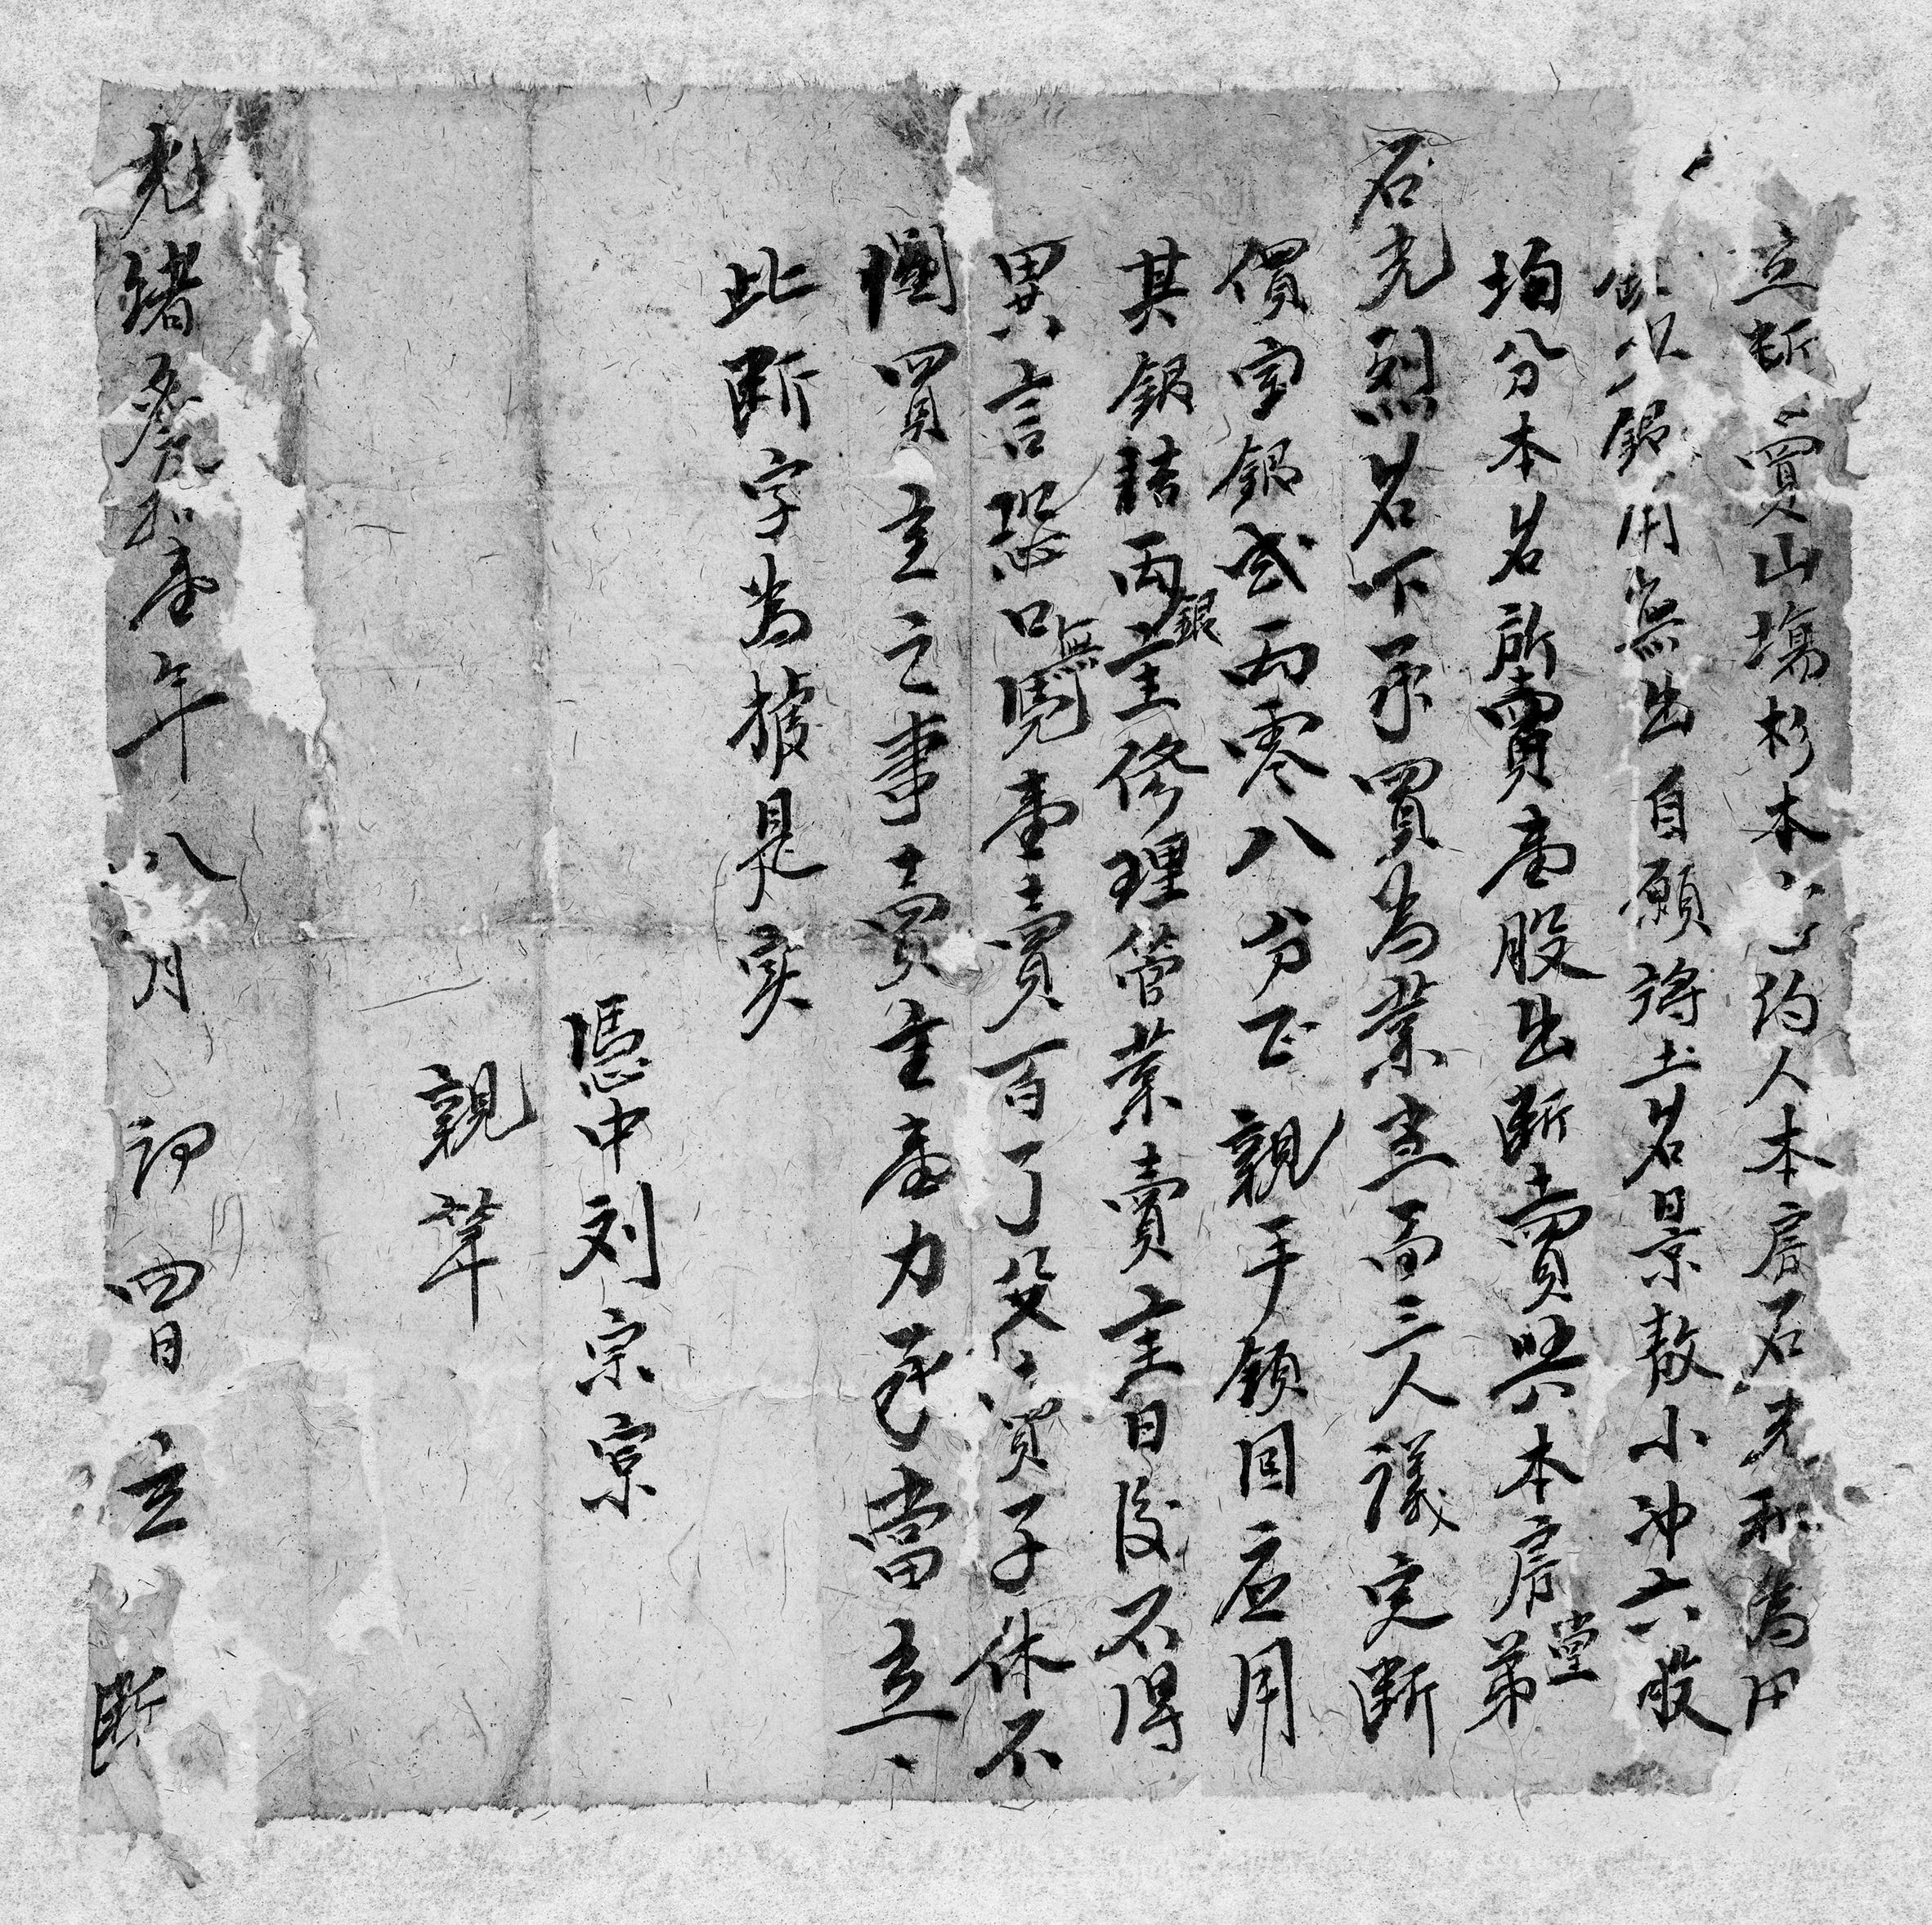 立断賣山塲杉木約人本房石光和為因
缺少銀用無出自願將土名景敖小冲六股
均分本名所賣壹股出断賣與本房堂弟
石光烈名下承買為業當面三人議定断
價字銀貳両零八分正親手領回应用
其銀詰両銀主修理管業賣主日後不得
異言恐口無凴壹賣百了父賣子休不
関買主之事賣主壹力承當立
此断字為據是实
憑中刘宗宗
親筆
光緒叁拾壹年八月初四日立断